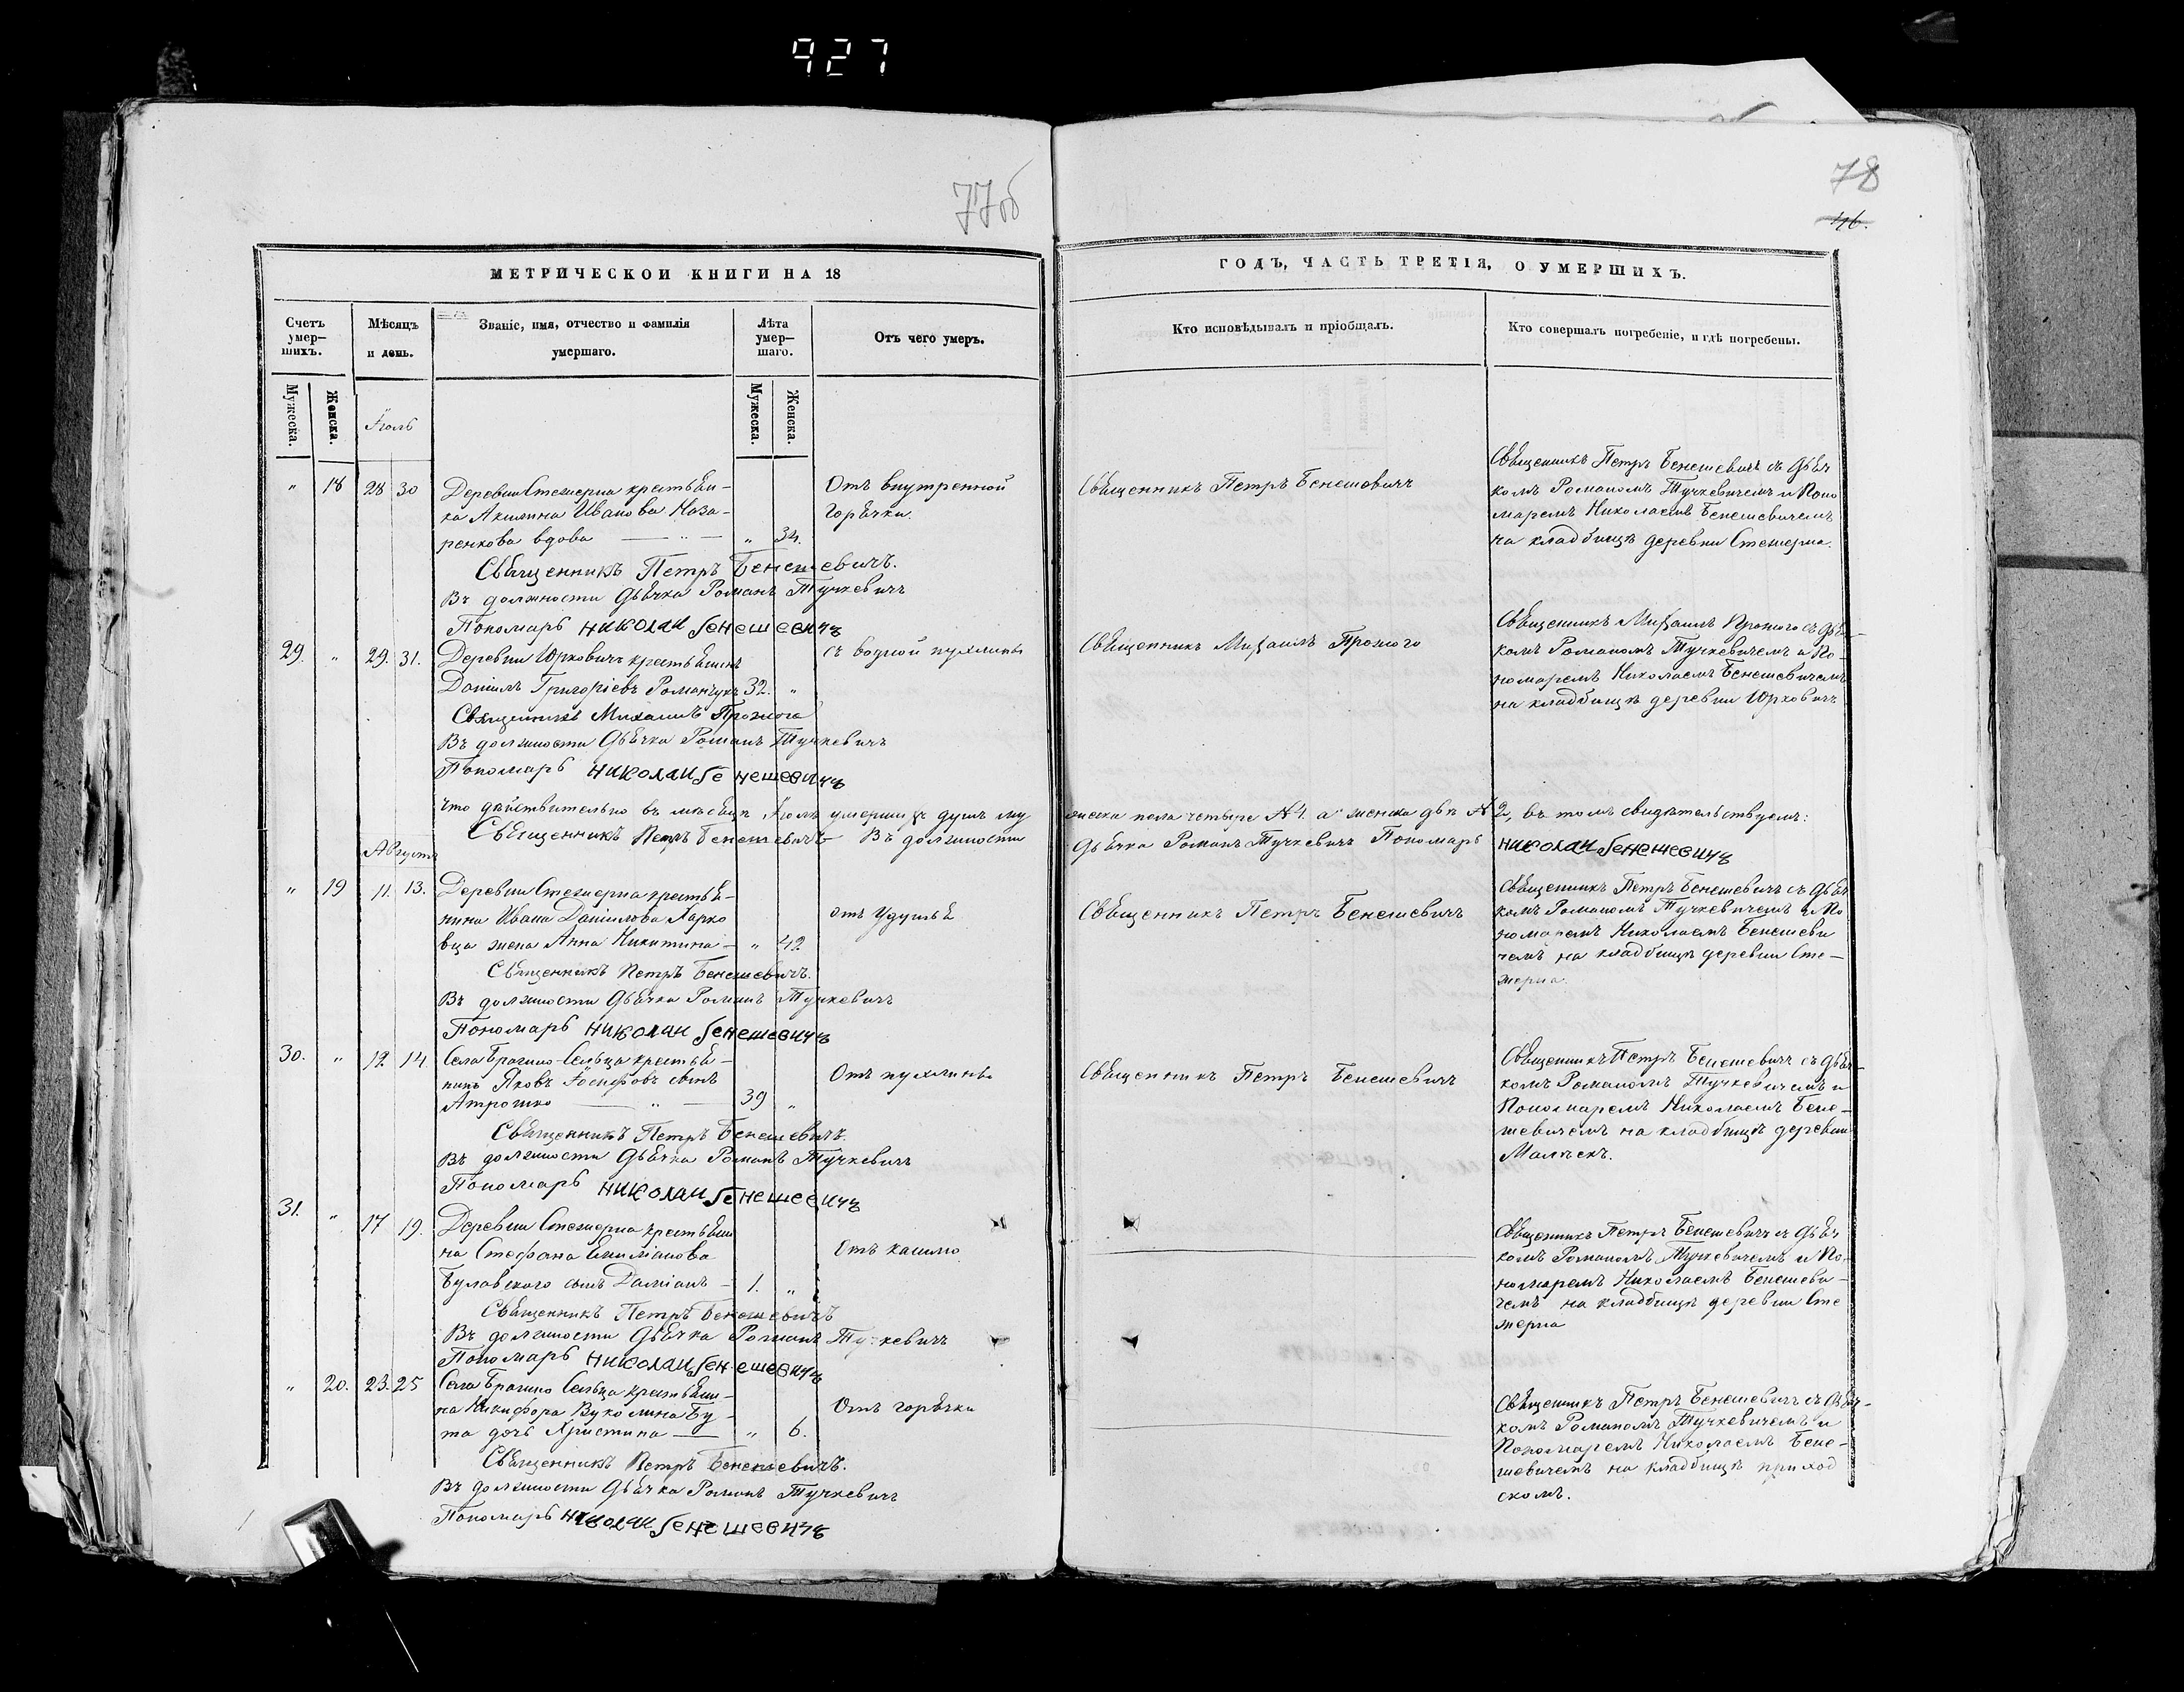 927
77об
78
146.
МЕТРИЧЕСКОЙ КНИГИ НА 18
ГОДЪ, ЧАСТЬ ТРЕТІЯ, О УМЕРШИХЪ.
Счетъ умер-
шихъ.
Мѣсяцъ
и день.
Званіе, имя, отчество и фамилія
умершаго.
Лѣта
умер-
шаго.
Отъ чего умеръ.
Кто исповѣдывалъ и пріобщалъ.
Кто совершалъ погребеніе, и гдѣ погребены.
Мужеска.
Женска.
Мужеска.
Женска.
Іюль
" 18 28 30
Деревни Стежерна крестьян-
ка Акилина Иванова Наза-
ренкова вдова — " — " 34.
Отъ внутренной
горячки
Священникъ Петръ Бенешовичъ
Священникъ Петръ Бенешевичъ съ Дьяч
комъ Романомъ Тучкевичемъ и Поно
маремъ Николаемъ Бенешевичемъ
на кладбищѣ деревни Стежерна.
Священникъ Петръ Бенешевичъ.
Въ должности Дьячка Романъ Тучкевичъ
Пономарь Николай Бенешевичъ
29. " 29. 31.
Деревни Юрковичъ крестьянинъ
Даніилъ Григоріевъ Романчукъ 32. "
съ водной пухлины
Священникъ Михаилъ Прожого
Священникъ Михаилъ Прожого съ Дьяч-
комъ Романомъ Тучкевичемъ и По-
номаремъ Николаемъ Бенешевичемъ
на кладбищѣ деревни Юрковичъ
Священникъ Михаилъ Прожога
Въ должности Дьячка Романъ Тучкевичъ
Пономарь Николай Бенешевичъ
что дѣйствительно въ мѣсяцѣ Іюлѣ умершихъ душъ му
жеска пола четыре №4. а женска двѣ №2, въ томъ свидѣтельствуемъ:
Священникъ Петръ Бенешевичъ В должности
Дьячка Романъ Тучкевичъ Пономарь Николай Бенешевичъ
Августъ
" 19 11. 13.
Деревни Стежерна крестья-
нина Ивана Даніилова Харко
вца жена Анна Никитина — " 42
отъ удушья
Священникъ Петръ Бенешевичъ
Священникъ Петръ Бенешевичъ съ Дьяч
комъ Романомъ Тучкевичемъ и По
номаремъ Николаемъ Бенешеви
чемъ на кладбищѣ деревни Сте-
жерна.
Священникъ Петръ Бенешевичъ.
Въ должности Дьячка Романъ Тучкевичъ
Пономарь Николай Бенешевичъ
30. " 12 14
Села Брагино-Сельца крестья-
нинъ Яковъ Іосифовъ сынъ
Атрошко — " — 39 "
Отъ пухлины
Священникъ Петръ Бенешевичъ
Священникъ Петръ Бенешевичъ съ Дьяч-
комъ Романомъ Тучкевичемъ и
Пономаремъ Николаемъ Бене-
шевичемъ на кладбищѣ деревни
Малѣекъ.
Священникъ Петръ Бенешевичъ.
Въ должности Дьячка Романъ Тучкевичъ
Пономарь Николай Бенешевичъ
31. " 17 19.
Деревни Стежерна крестьяни
на Стефана Емиліанова
Булавского сынъ Даміанъ — 1. "
Отъ кашлю
Священникъ Петръ Бенешевичъ съ Дьяч
комъ Романомъ Тучкевичемъ и По-
номаремъ Николаемъ Бенешеви-
чемъ на кладбищѣ деревни Сте
жерна
Священникъ Петръ Бенешевичъ
Въ должности Дьячка Романъ Тучкевичъ
Пономарь Николай Бенешевичъ
" 20. 23. 25
Села Брагино Сельца крестьяни-
на Никифора Вуколина Бу-
та дочь Христина — " 6.
Отъ горячки
Священникъ Петръ Бенешевичъ съ Дьяч-
комъ Романомъ Тучкевичемъ и
Пономаремъ Николаемъ Бене-
шевичемъ на кладбищѣ приход
скомъ.
Священникъ Петръ Бенешевичъ.
Въ должности Дьячка Романъ Тучкевичъ
Пономарь Николай Бенешевичъ